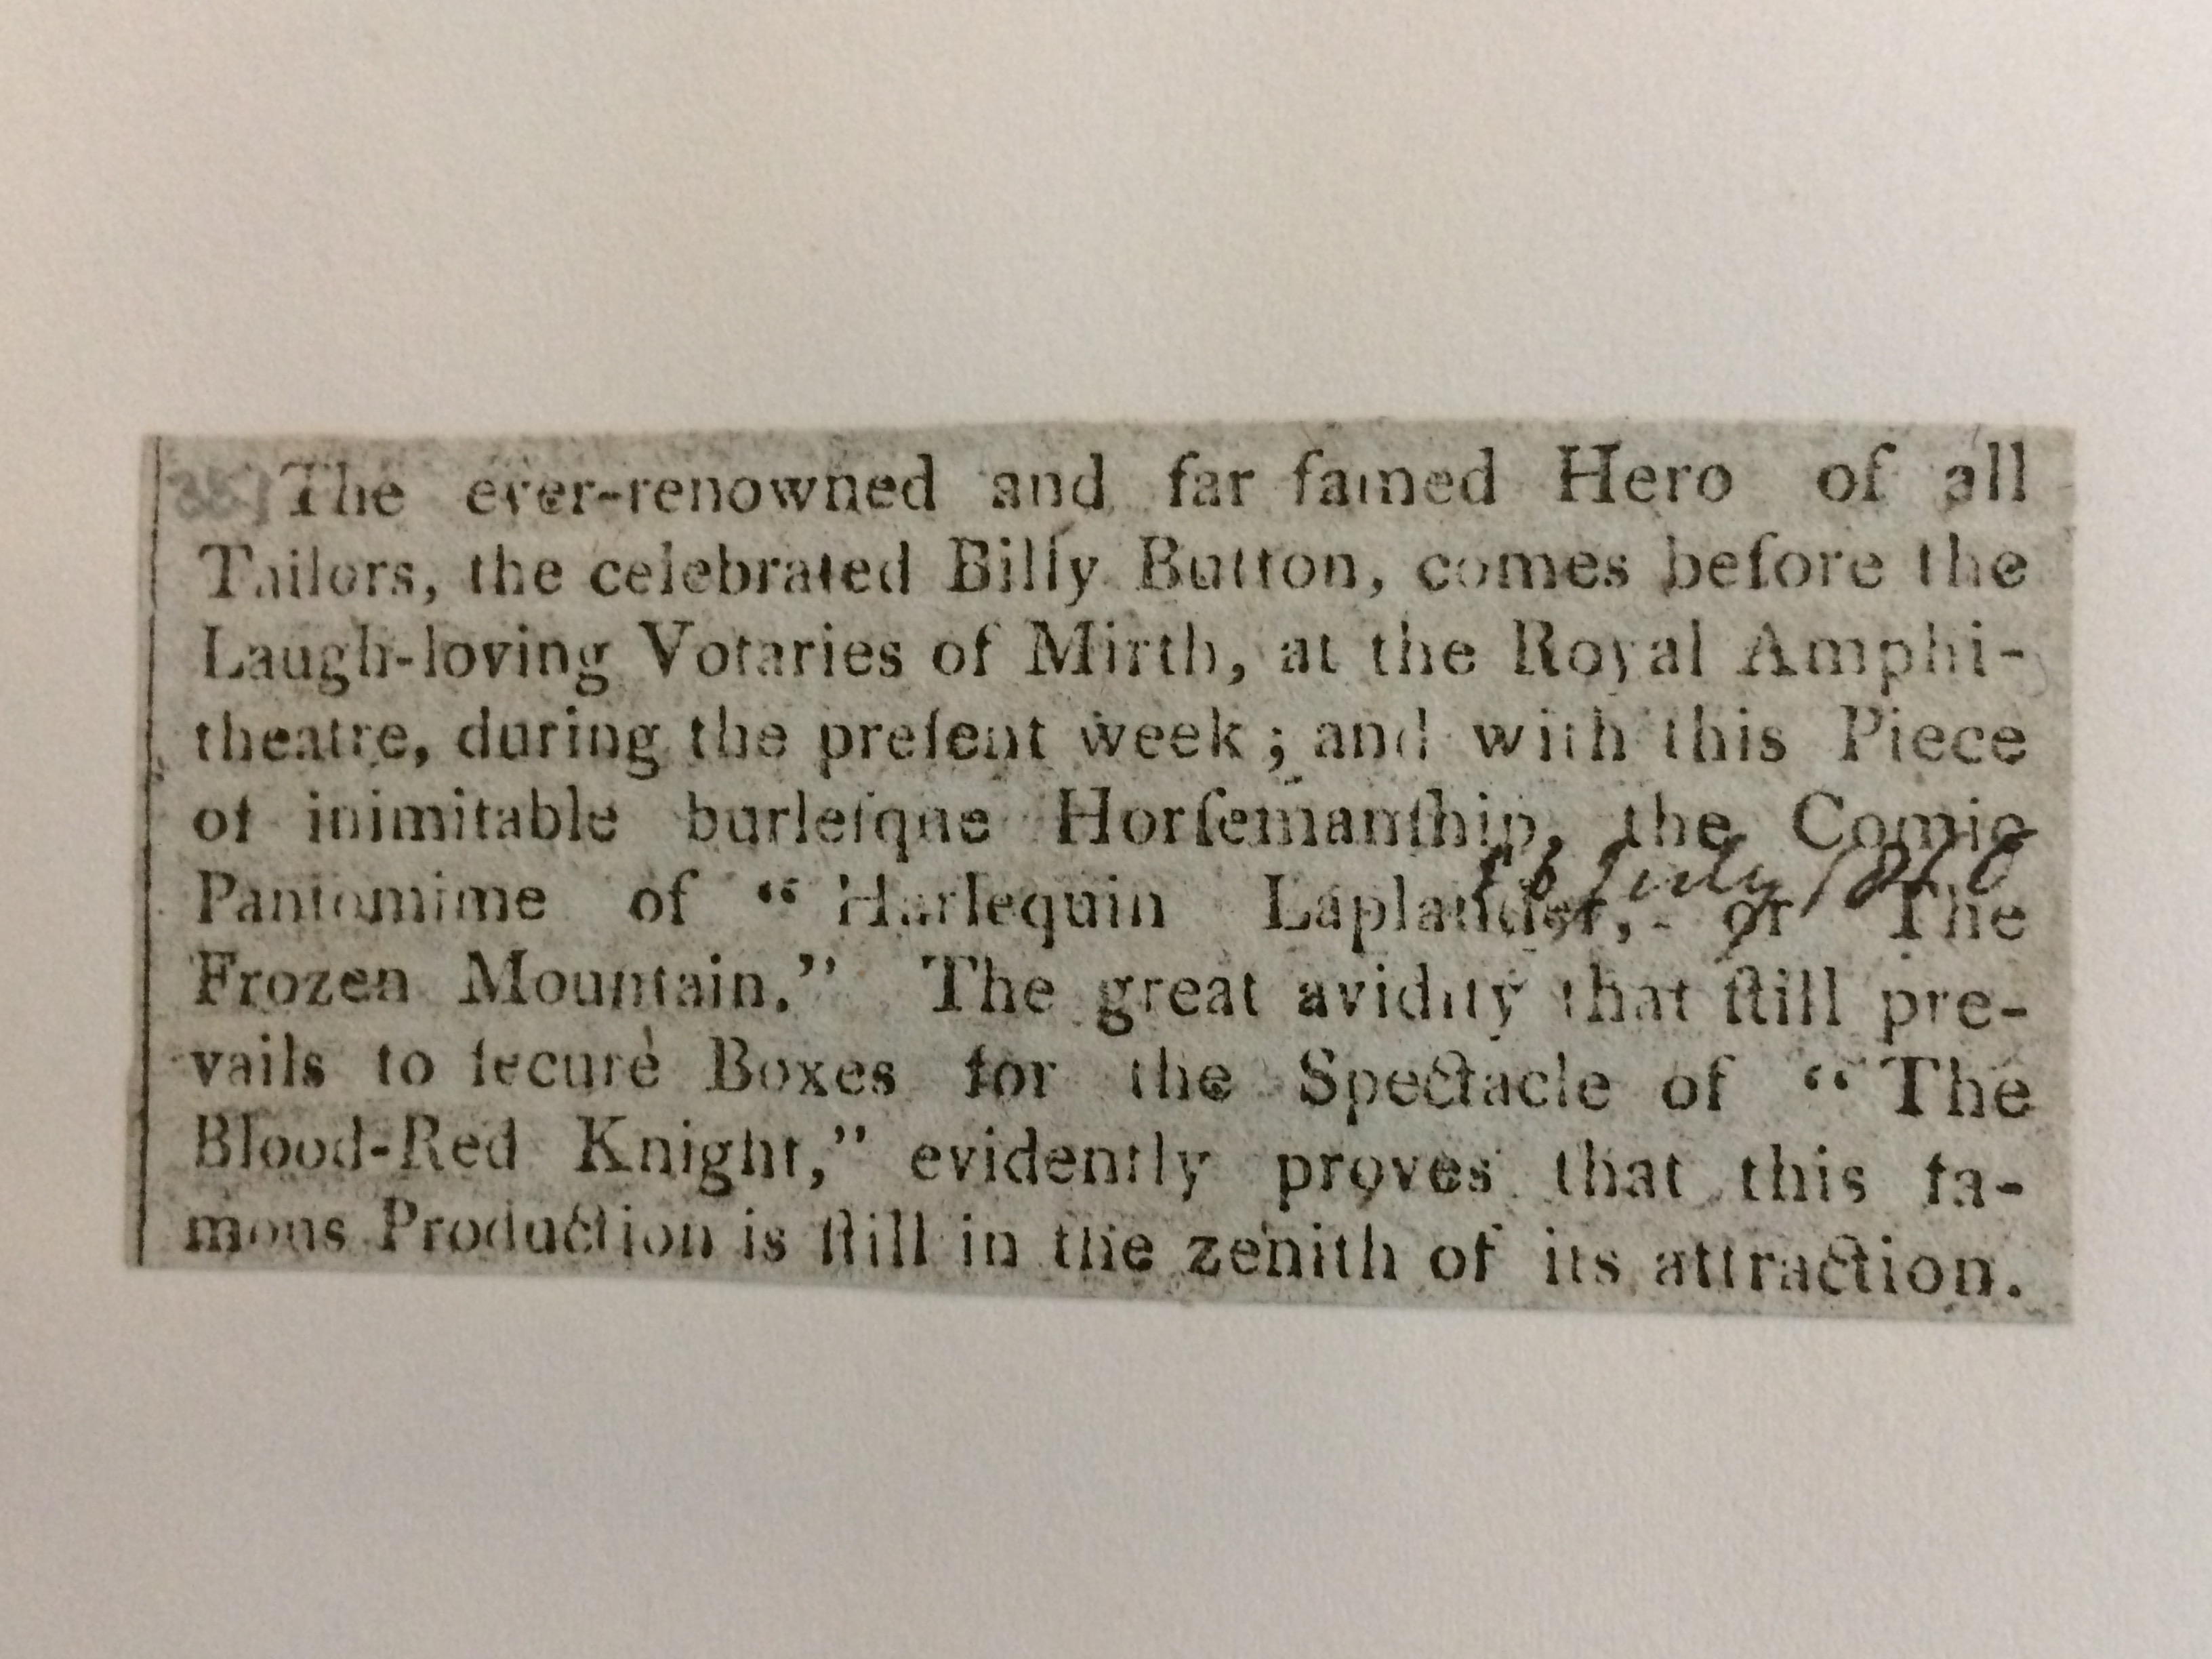 The ever-renowned and far famed Hero of all
Tailors, the celebrated Billy Button, comes before the
Laugh-loving Votaries of Mirth, at the Royal Amphi-
theatre, during the preſent week; and with this Piece
of inimitable burleſque Horſemanſhip, the Comic
July 1810
Pantomime of “Harlequin Laplander, or The
Frozen Mountain.” The great avidity that ſtill pre-
vails to ſecure Boxes for the Spectacle of “The
Blood-Red Knight,” evidently proves that this fa-
mous Production is ſtill in the zenith of its attraction.